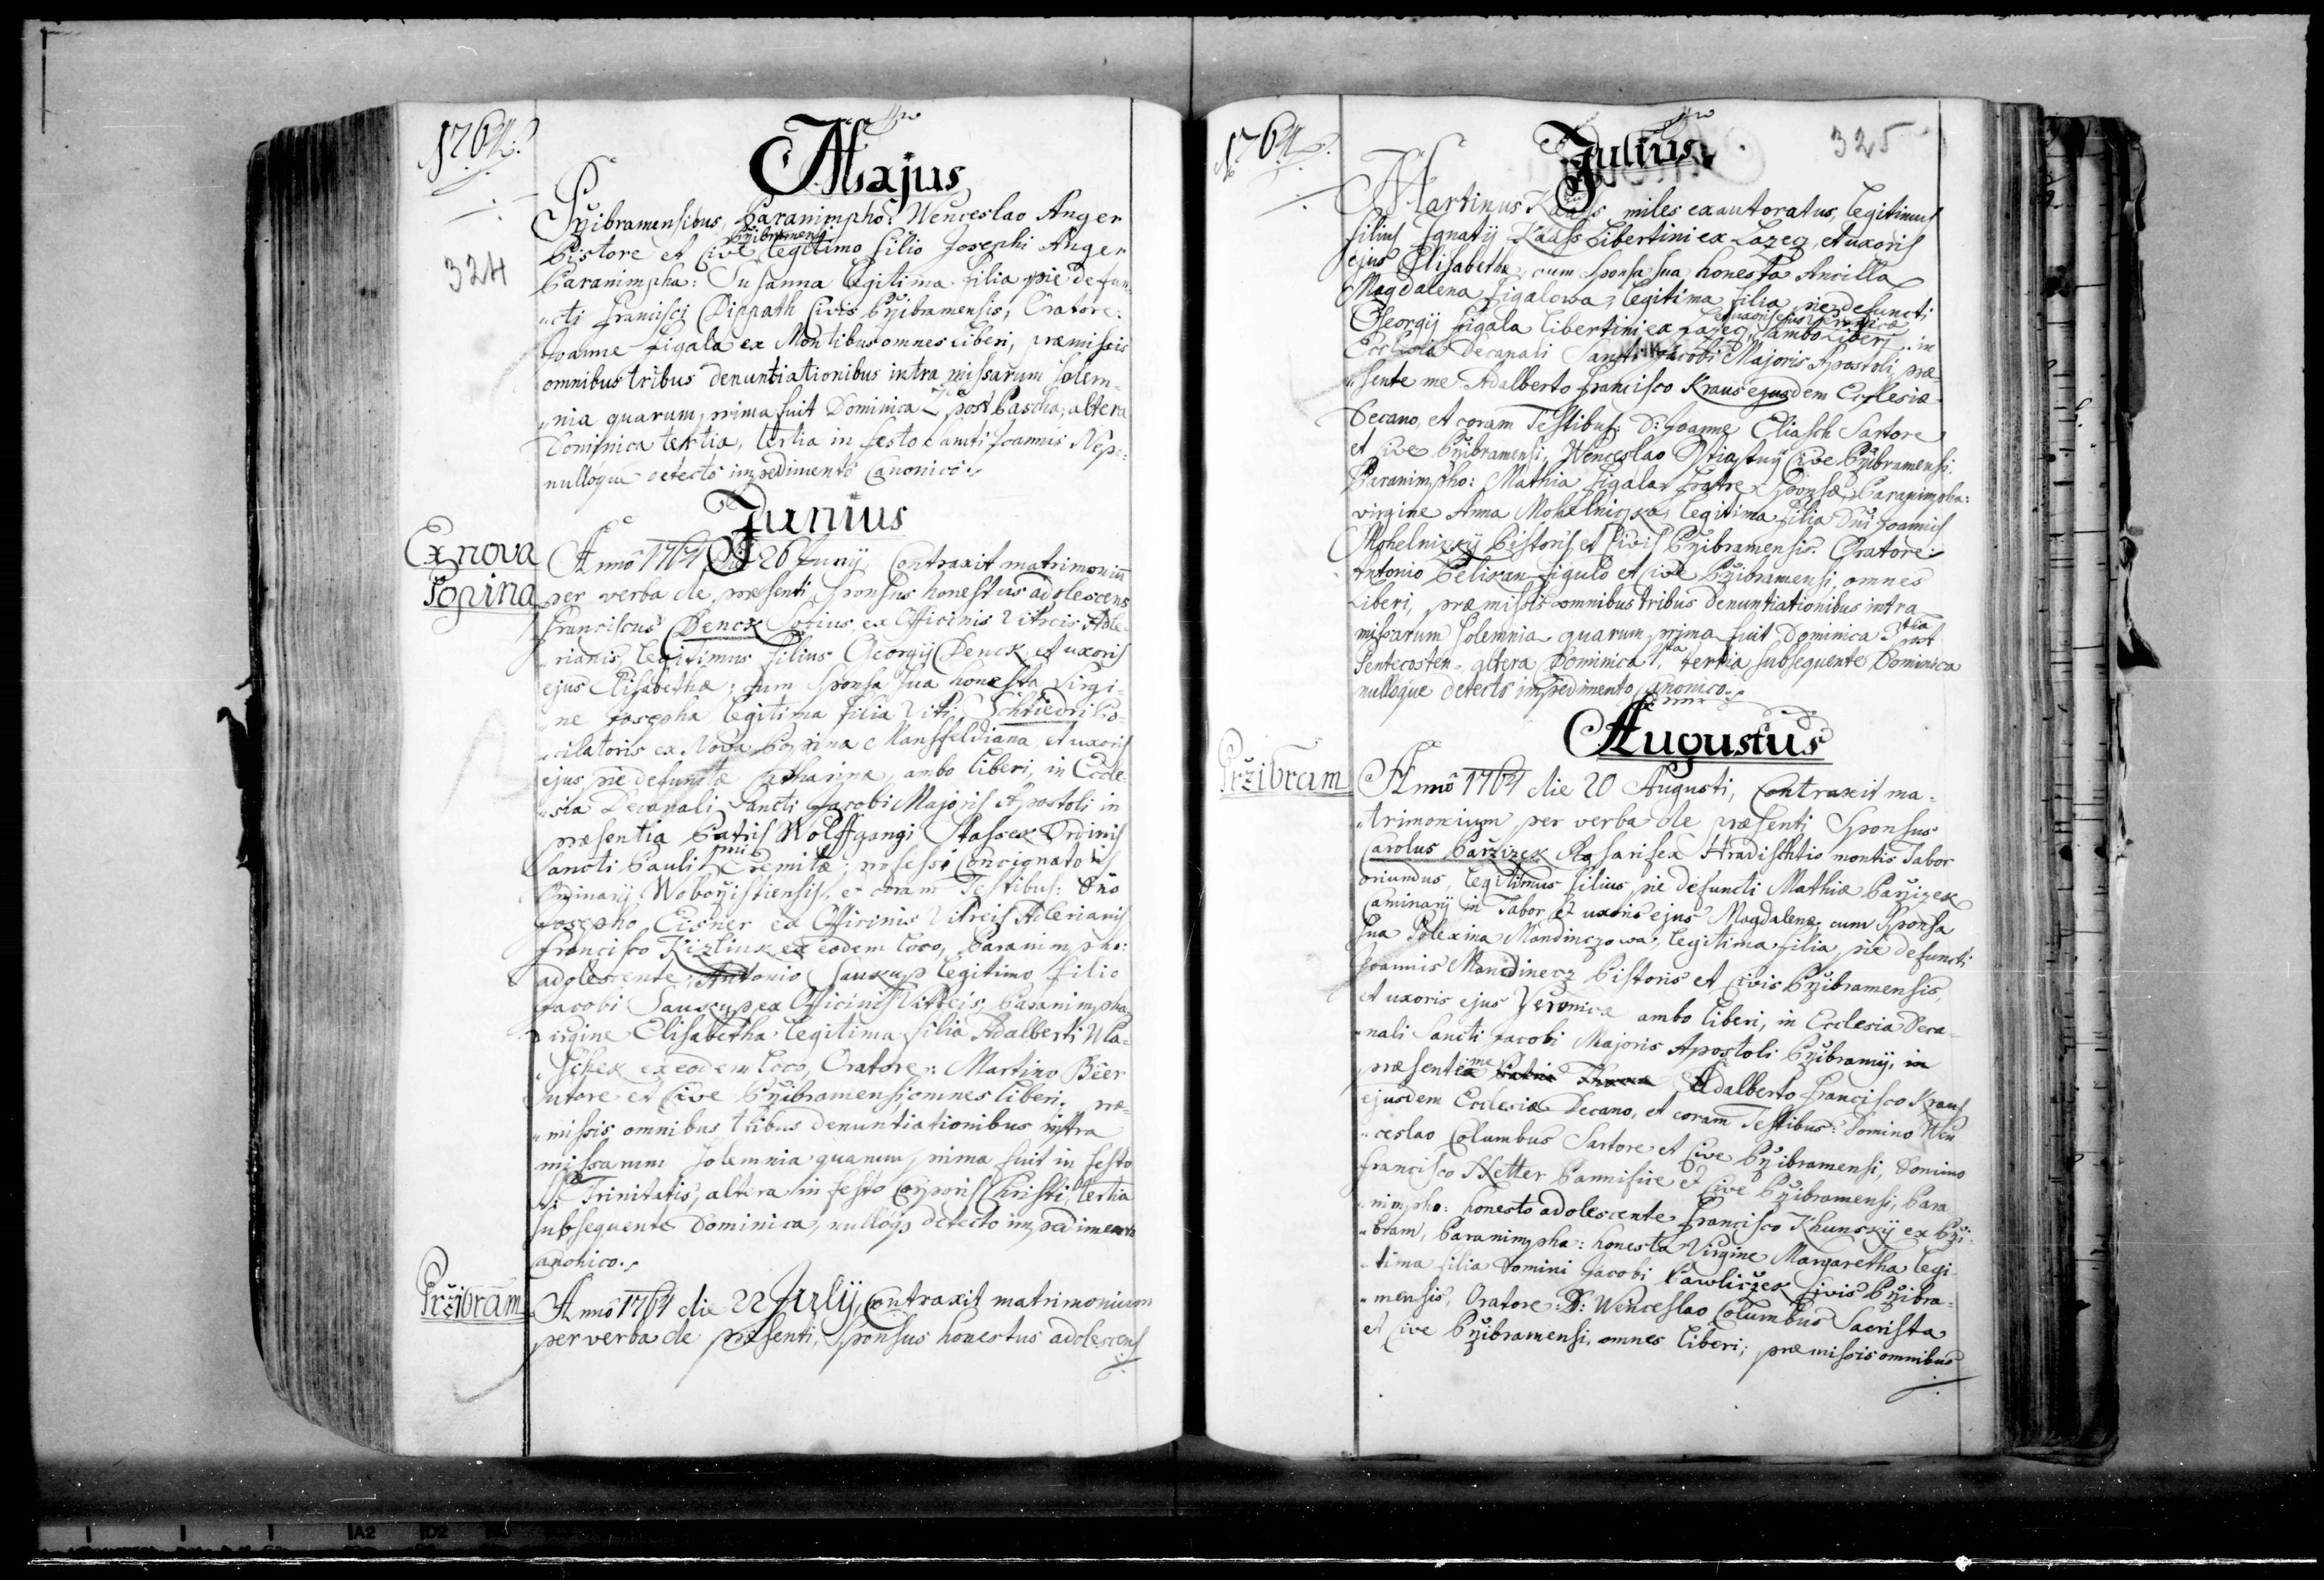 1764.
Majus
Pržibramensibus, Paranimpho: Wenceslao Anger
Pržibramensi
Pistore et Cive legitimo filio Josephi Anger
324
Paranimpha: Susanna legitima filia pie defun-
"cti Francisci Dippath Civis Pržibramensis, Oratore:
Joanne Figala ex Montibus omnes Liberi, præmissis
omnibus tribus denuntiationibus intra missarum solem-
"nia quarum, prima fuit Dominica 2da post Pascha, altera
Dominica tertia, tertia in festo Sancti Joannis Nepo:
nulloque detecto impedimento canonico.
Junius
Ex nova
Popina
Anno 1764 Die 26 Junij, Contraxit matrimoniū
per verba de præsenti, Sponsus honestus adolescens
Franciscus Denck Sotius ex Officinis Vitreis Adle-
"rianis, legitimus filius Georgij Denck, et uxoris
ejus Elisabethæ; cum Sponsa sua honesta Virgi-
"ne Josepha legitima filia Viti Schriedri Po-
"cilatoris ex Nova Popina Mansfeldiana, et uxoris
ejus pie defunctæ Catharinæ, ambo liberi, in Eccle-
"sia Decanali Sancti Jacobi Majoris Apostoli in
præsentia Patris Wolffgangi Stassek Ordinis
Sancti Pauli pmi Eremitæ, professi Concignatoris
Ordinarij Woboržistiensis, et coram Testibus: Dno
Josepho Eisner ex Officinis Vitreis Adlerianis
Francisco Kizlink ex eodem loco, Paranimpho:
adolescente Antonio Sauxup legitimo filio
Jacobi Sauxup ex Officinis Vitreis, Paranimpha
Virgine Elisabetha legitima filia Adalberti Wla-
"schek ex eodem loco, Oratore: Martino Béer
Sutore et Cive Pržibramensi, omnes liberi, præ-
"missis omnibus tribus denuntiationibus intra
missarum solemnia quarum, prima fuit in festo
SSæ: Trinitatis, altera in festo Corporis Christi, tertia
subsequente Dominica, nulloq detecto impedimento
canonico.
Pržibram
Anno 1764 die 22 Julij, Contraxit matrimonium
per verba de præsenti, Sponsus honestus adolescens
1764.
Julius
325
Martinus Kauss miles exautoratus, legitimus
filius Ignatij Kauss Libertini ex Lazecz, et uxoris
ejus Elisabethæ, cum Sponsa sua honesta Ancilla
Magdalena Figalowa, legitima filia pie defuncti
et uxoris ejus Veronicæ
Georgij Figala libertini ex Lazecz, ambo Liberi, in
Ecclesia Decanali Sancti Jacobi Majoris Apostoli, præ-
"sente me Adalberto Francisco Kraus ejusdem Ecclesiæ
Decano, et coram Testibus: D: Joanne Eliasch Sartore
et Cive Pržibramensi, Wenceslao Cive Pržibramensi.
Paranimpho: Mathia Figala Fratre Sponsæ, Paranimpha:
virgine Anna Mohelniczka, legitima filia Dni Joannis
Mohelniczkij Pistoris, et Civis Pržibramensis. Oratore:
Antonio Pelikan Figulo et Cive Pržibramensi, omnes
Liberi, præmissis omnibus tribus denuntiationibus intra
missarum solemnia quarum, prima fuit Dominica 3tia post
Pentecosten, altera Dominica 4ta, tertia subsequente Dominica
nulloque detecto impedimento canonico.
Augustus
Pržibram
Anno 1764 die 20 Augusti, Contraxit ma-
"trimonium per verba de præsenti Sponsus
Carolus Paržizek Rosarifex Hradischtio montis Tabor
oriundus, legitimus filius pie defuncti Mathiæ Paržizek
Caminarij in Tabor et uxoris ejus Magdalenæ, cum Sponsa
sua Polexina Mandinczowa, legitima filia pie defuncti
Joannis Mandinecz Pistoris et Civis Pržibramensis,
et uxoris ejus Veronicæ ambo liberi, in Ecclesia Deca-
"nali Sancti Jacobi Majoris Apostoli Pržibramij, in
præsente me Adalberto Francisco Kraus
ejusdem Ecclesiæ Decano, et coram Testibus: Domino Wen-
"ceslao Columbus Sartore et Cive Pržibramensi, Domino
Francisco Hetter Pannifice et Cive Pržibramensi, Para-
"nimpho: honesto adolescente Francisco Khunskij ex Prži-
"bram, Paranimpha: honesta Virgine Margaretha legi-
"tima filia Domini Jacobi Pawliczek Civis Pržibra-
"mensis, Oratore: D: Wenceslao Columbus Sacrista
et Cive Pržibramensi, omnes liberi; præmissis omnibus
A2
D2